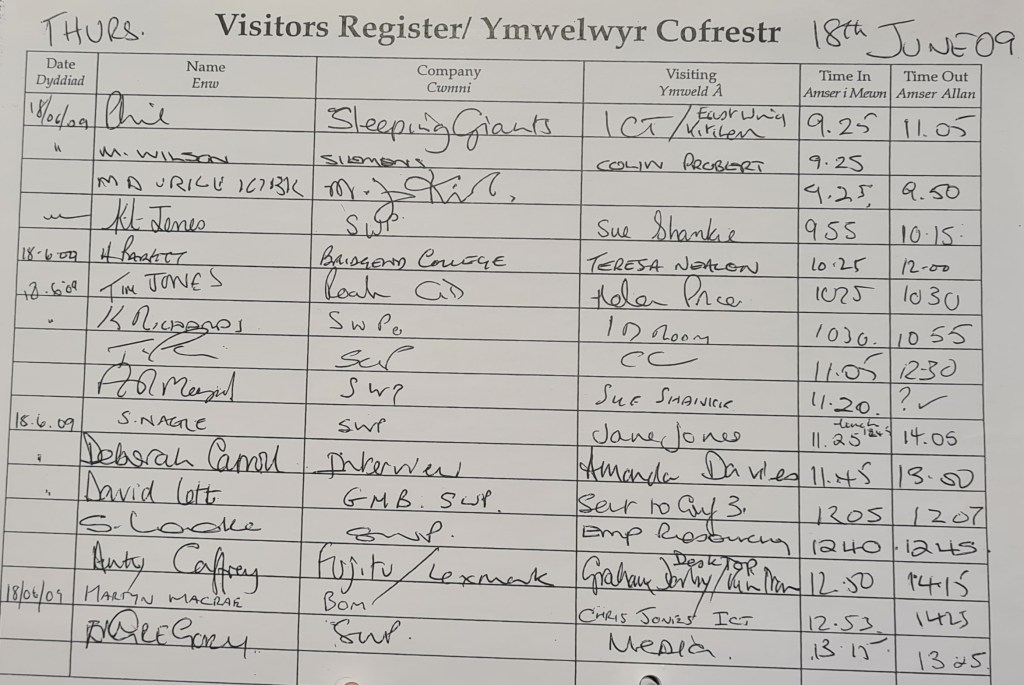 THURS. Visitors Register/ Ymwelwyr Cofrestr 18th JUNE 09
Date Name Company Visiting Time In Time Out
Dyddiad Enw Cwmni Ymweld Â Amser i Mewn Amser Allan
18/06/09 Phil Sleeping Giants ICT / East Wing Kitchen 9.25 11.05
" M. WILSON SIEMENS COLIN PROBERT 9.25
MAURICE KIRK M. J Kirk, 9.25, 9.50
Jones SWP. Sue Shankie 955 10.15.
18-6-09 BRIDGEND COLLEGE TERESA 10.25 12-00
18.6.09 TIM JONES Helen Price 1025 1030
" K RICHARDS SWP. Room 1030. 1055
CC 11.05 12-30
SWP SUE SHANKIE 11.20. ? ✓
18.6.09 S. NAGLE SWP Jane Jones 11.25 14.05
" Deborah Carroll Interview Amanda Davies 11.45 13.50
" David Lott GMB. SWP. 1205 1207
S. Cooke SWP. Emp Resourcing 1240 1245
Caffrey Fujitu / Lexmark Graham / DESKTOP 12.50 1415
18/06/09 MARTYN MACRAE BOM CHRIS JONES ICT 12.53. 1425
GREGORY. SWP. MEDIA. 13.15 1325.